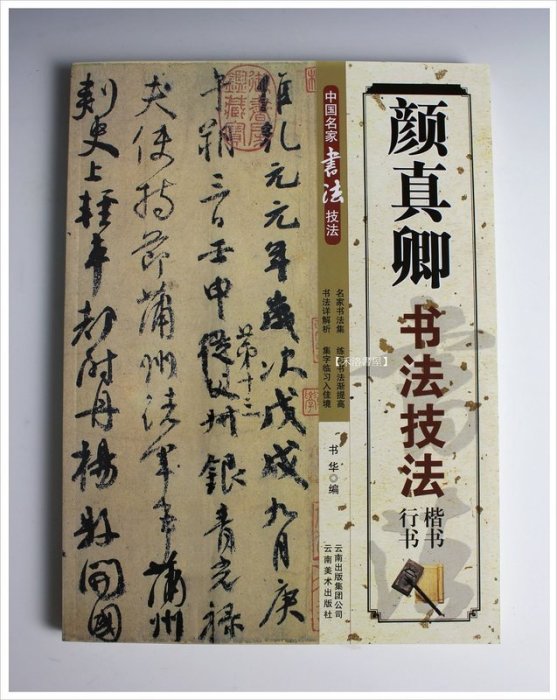 颜真卿
书法技法
楷书
行书
中国名家书法技法
名家书法集
练习书法渐提高
书法详解析
集字临习入佳境
【禾洛書屋】
书华 编
云南出版集团公司
云南美术出版社
維乾元元年歲次戊戌九月庚
午朔三日壬申第十三從父銀青光禄
夫使持節蒲州諸軍事蒲州
刺史上輕車都尉丹楊縣開國